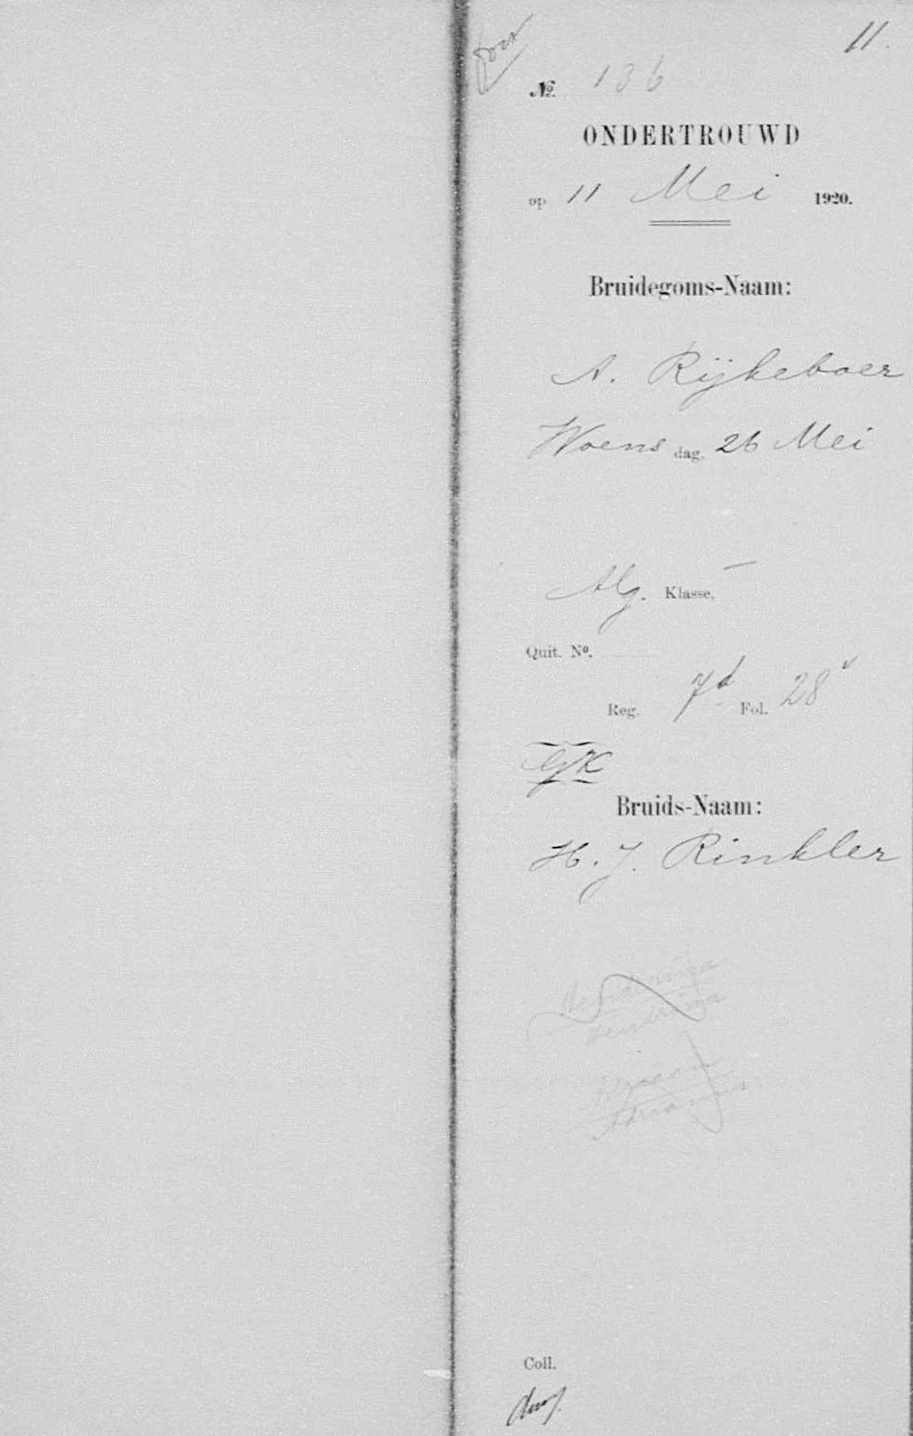 11.
№. 136
ONDERTROUWD
op 11 Mei 1920.
Bruidegoms-Naam:
A. Rijkeboer
Woensdag, 26 Mei
Alg. Klasse. —
Quit. Nº.
Reg. 7d Fol. 28v
GK
Bruids-Naam:
H. J. Rinkler
Coll.